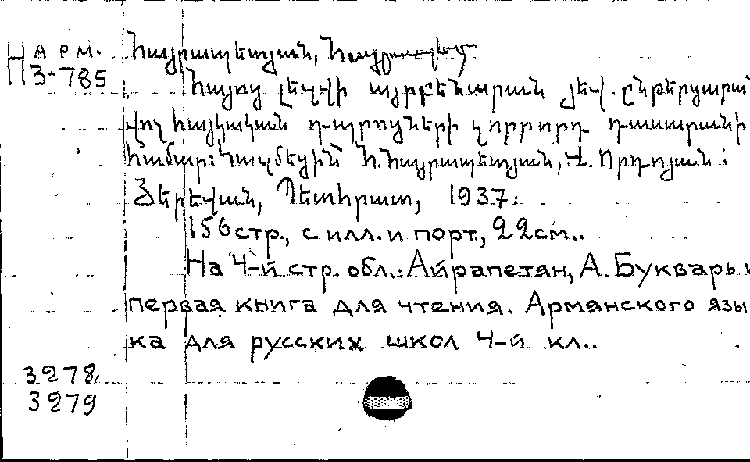 Н арм.
3-785
Հայրապետյան, Հայրապետ
Հայոց լեզվի այբբենարան յեվ ընթերցարան
վոչ հայկական դպրոցների չորրորդ դասարանի
համար: Կազմեցին՝ Հ. Հայրապետյան,
Յերեվան, Պետհրատ, 1937.
156 стр., с илл. и порт., 22 см..
На 4-й стр. обл.: Айрапетян, А. Букварь и
первая книга для чтения. Армянского язы
ка для русских школ 4-й кл..
3278
3279